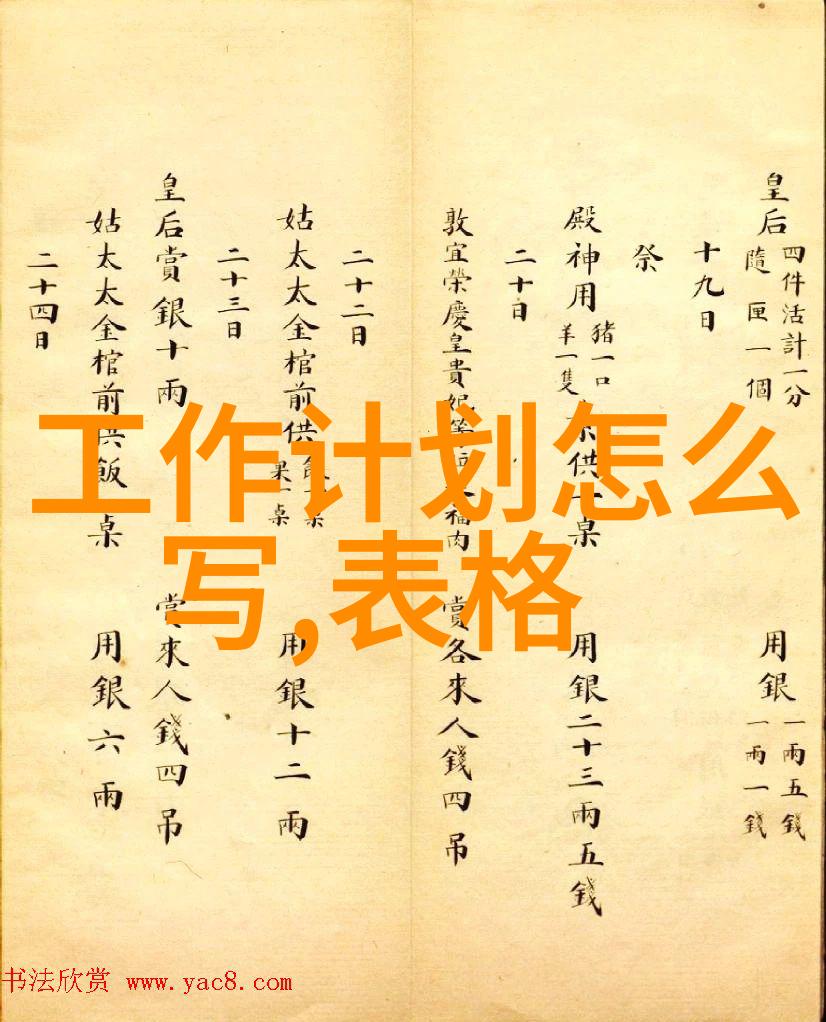 工作计划怎么
写,表格
皇后四件活計一分隨匣一個 用銀一兩五錢一兩一錢
十九日
祭
殿神用猪一口羊一隻供桌 用銀二十三兩五錢
二十日
敦宜榮慶皇貴妃等福肉 賞各來人錢四吊
二十二日
姑太太金棺前供飯一桌果一桌 用銀十二兩
二十三日
皇后賞銀十兩 賞來人錢四吊
姑太太金棺前供飯桌 用銀六兩
二十四日
书法欣赏 www.yac8.com